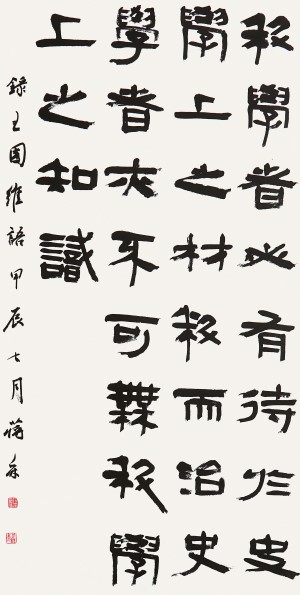 科學者必有待於史
學上之材料而治史
學者亦不可無科學
上之知識
錄王國維語甲辰七月蔣